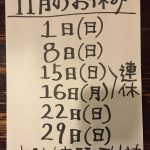 11月のお休み
1日(日)
8日(日)
15日(日)
16日(月)
連休
22日(日)
29日(日)